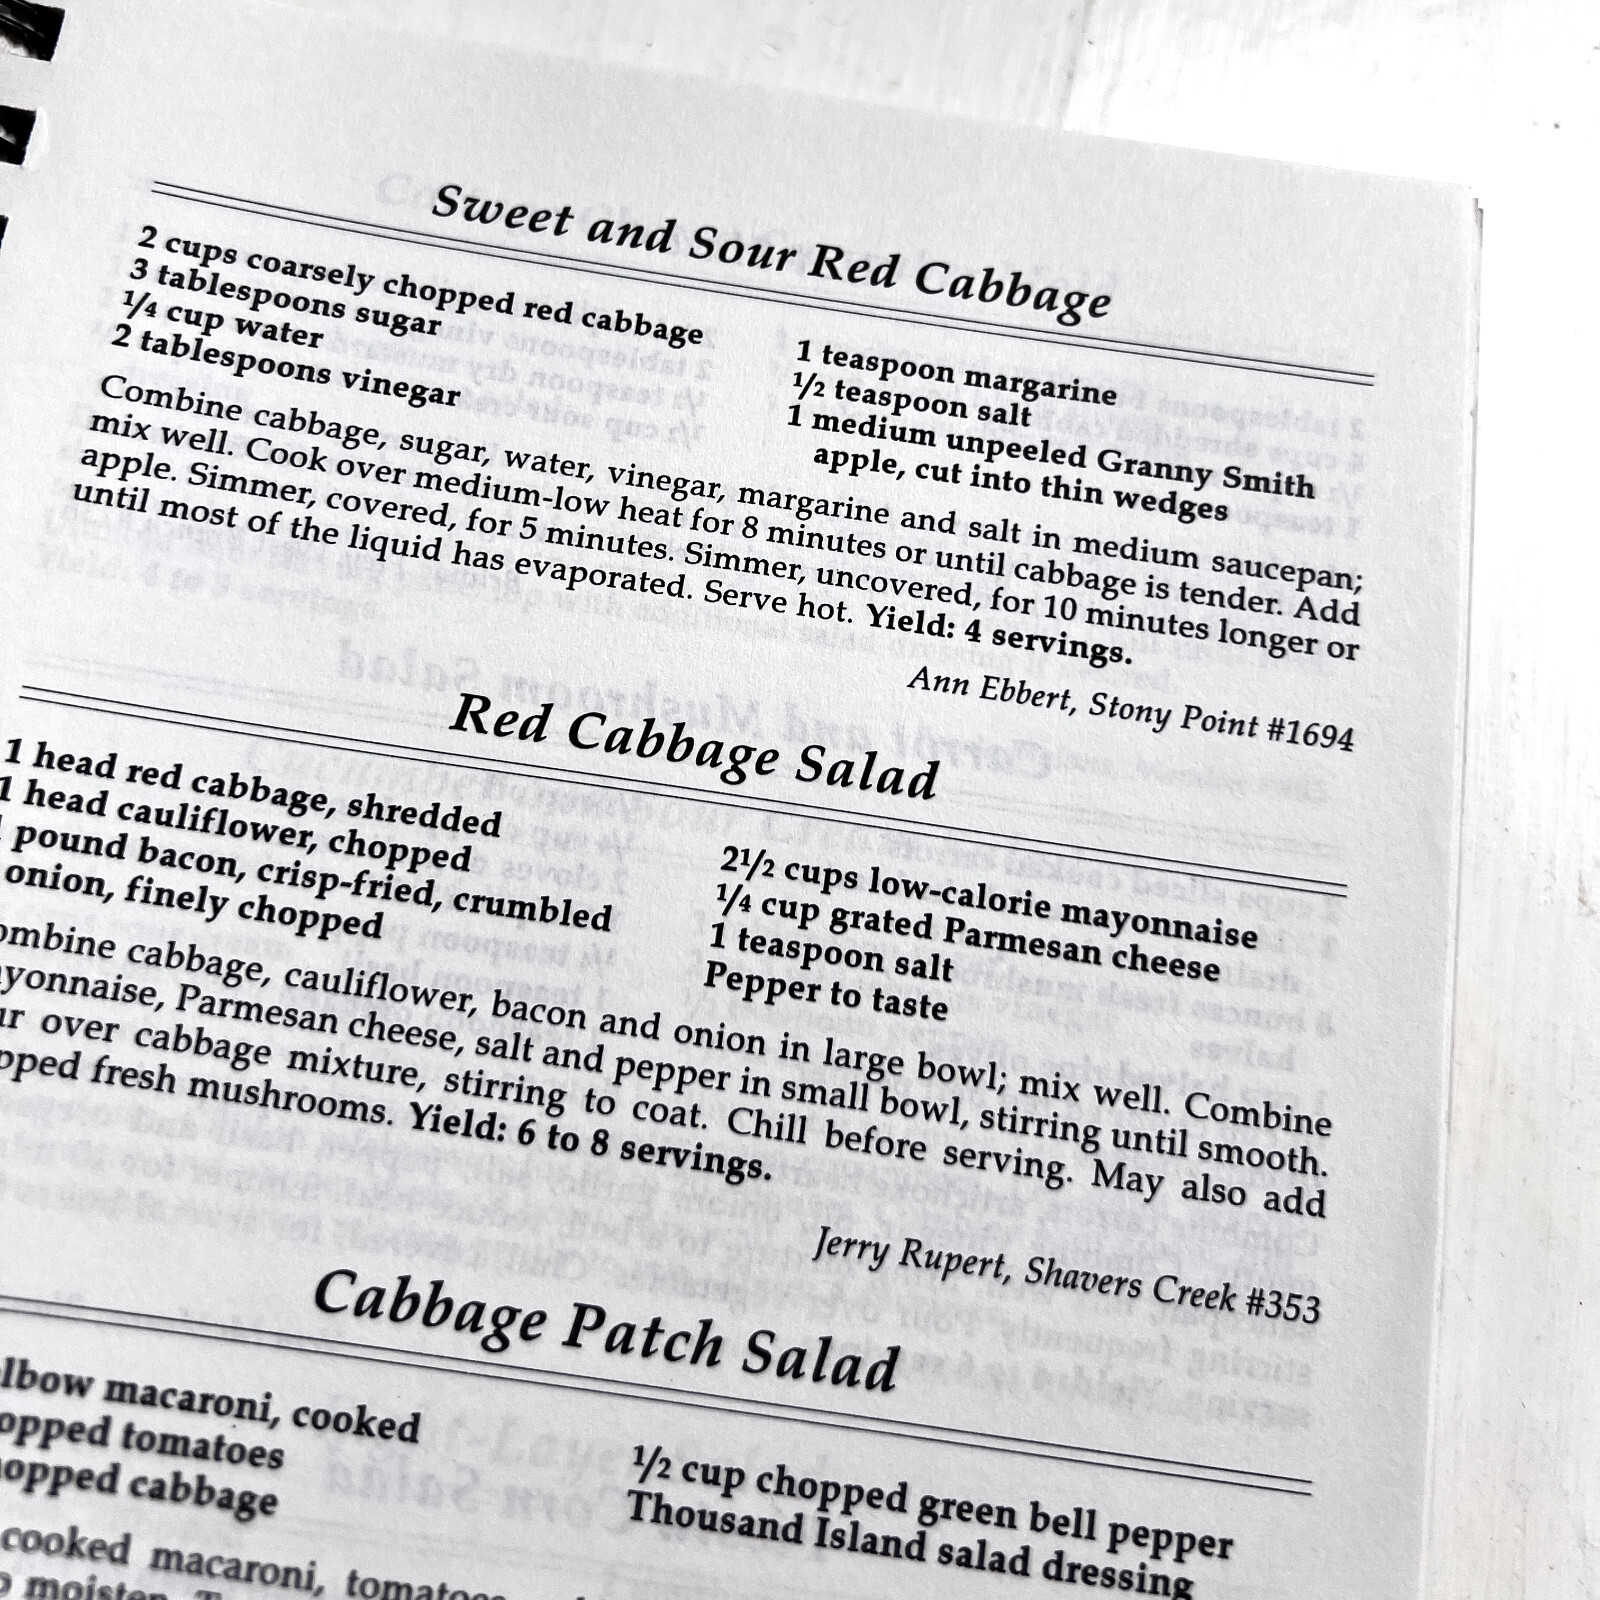 Sweet and Sour Red Cabbage
2 cups coarsely chopped red cabbage
3 tablespoons sugar
1/4 cup water
2 tablespoons vinegar
1 teaspoon margarine
1/2 teaspoon salt
1 medium unpeeled Granny Smith
apple, cut into thin wedges
Combine cabbage, sugar, water, vinegar, margarine and salt in medium saucepan;
mix well. Cook over medium-low heat for 8 minutes or until cabbage is tender. Add
apple. Simmer, covered, for 5 minutes. Simmer, uncovered, for 10 minutes longer or
until most of the liquid has evaporated. Serve hot. Yield: 4 servings.
Ann Ebbert, Stony Point #1694
Red Cabbage Salad
1 head red cabbage, shredded
1 head cauliflower, chopped
pound bacon, crisp-fried, crumbled
onion, finely chopped
2 1/2 cups low-calorie mayonnaise
1/4 cup grated Parmesan cheese
1 teaspoon salt
Pepper to taste
ombine cabbage, cauliflower, bacon and onion in large bowl; mix well. Combine
ayonnaise, Parmesan cheese, salt and pepper in small bowl, stirring until smooth.
ur over cabbage mixture, stirring to coat. Chill before serving. May also add
pped fresh mushrooms. Yield: 6 to 8 servings.
Jerry Rupert, Shavers Creek #353
Cabbage Patch Salad
lbow macaroni, cooked
opped tomatoes
hopped cabbage
1/2 cup chopped green bell pepper
Thousand Island salad dressing
cooked macaroni, tomatoes
moisten